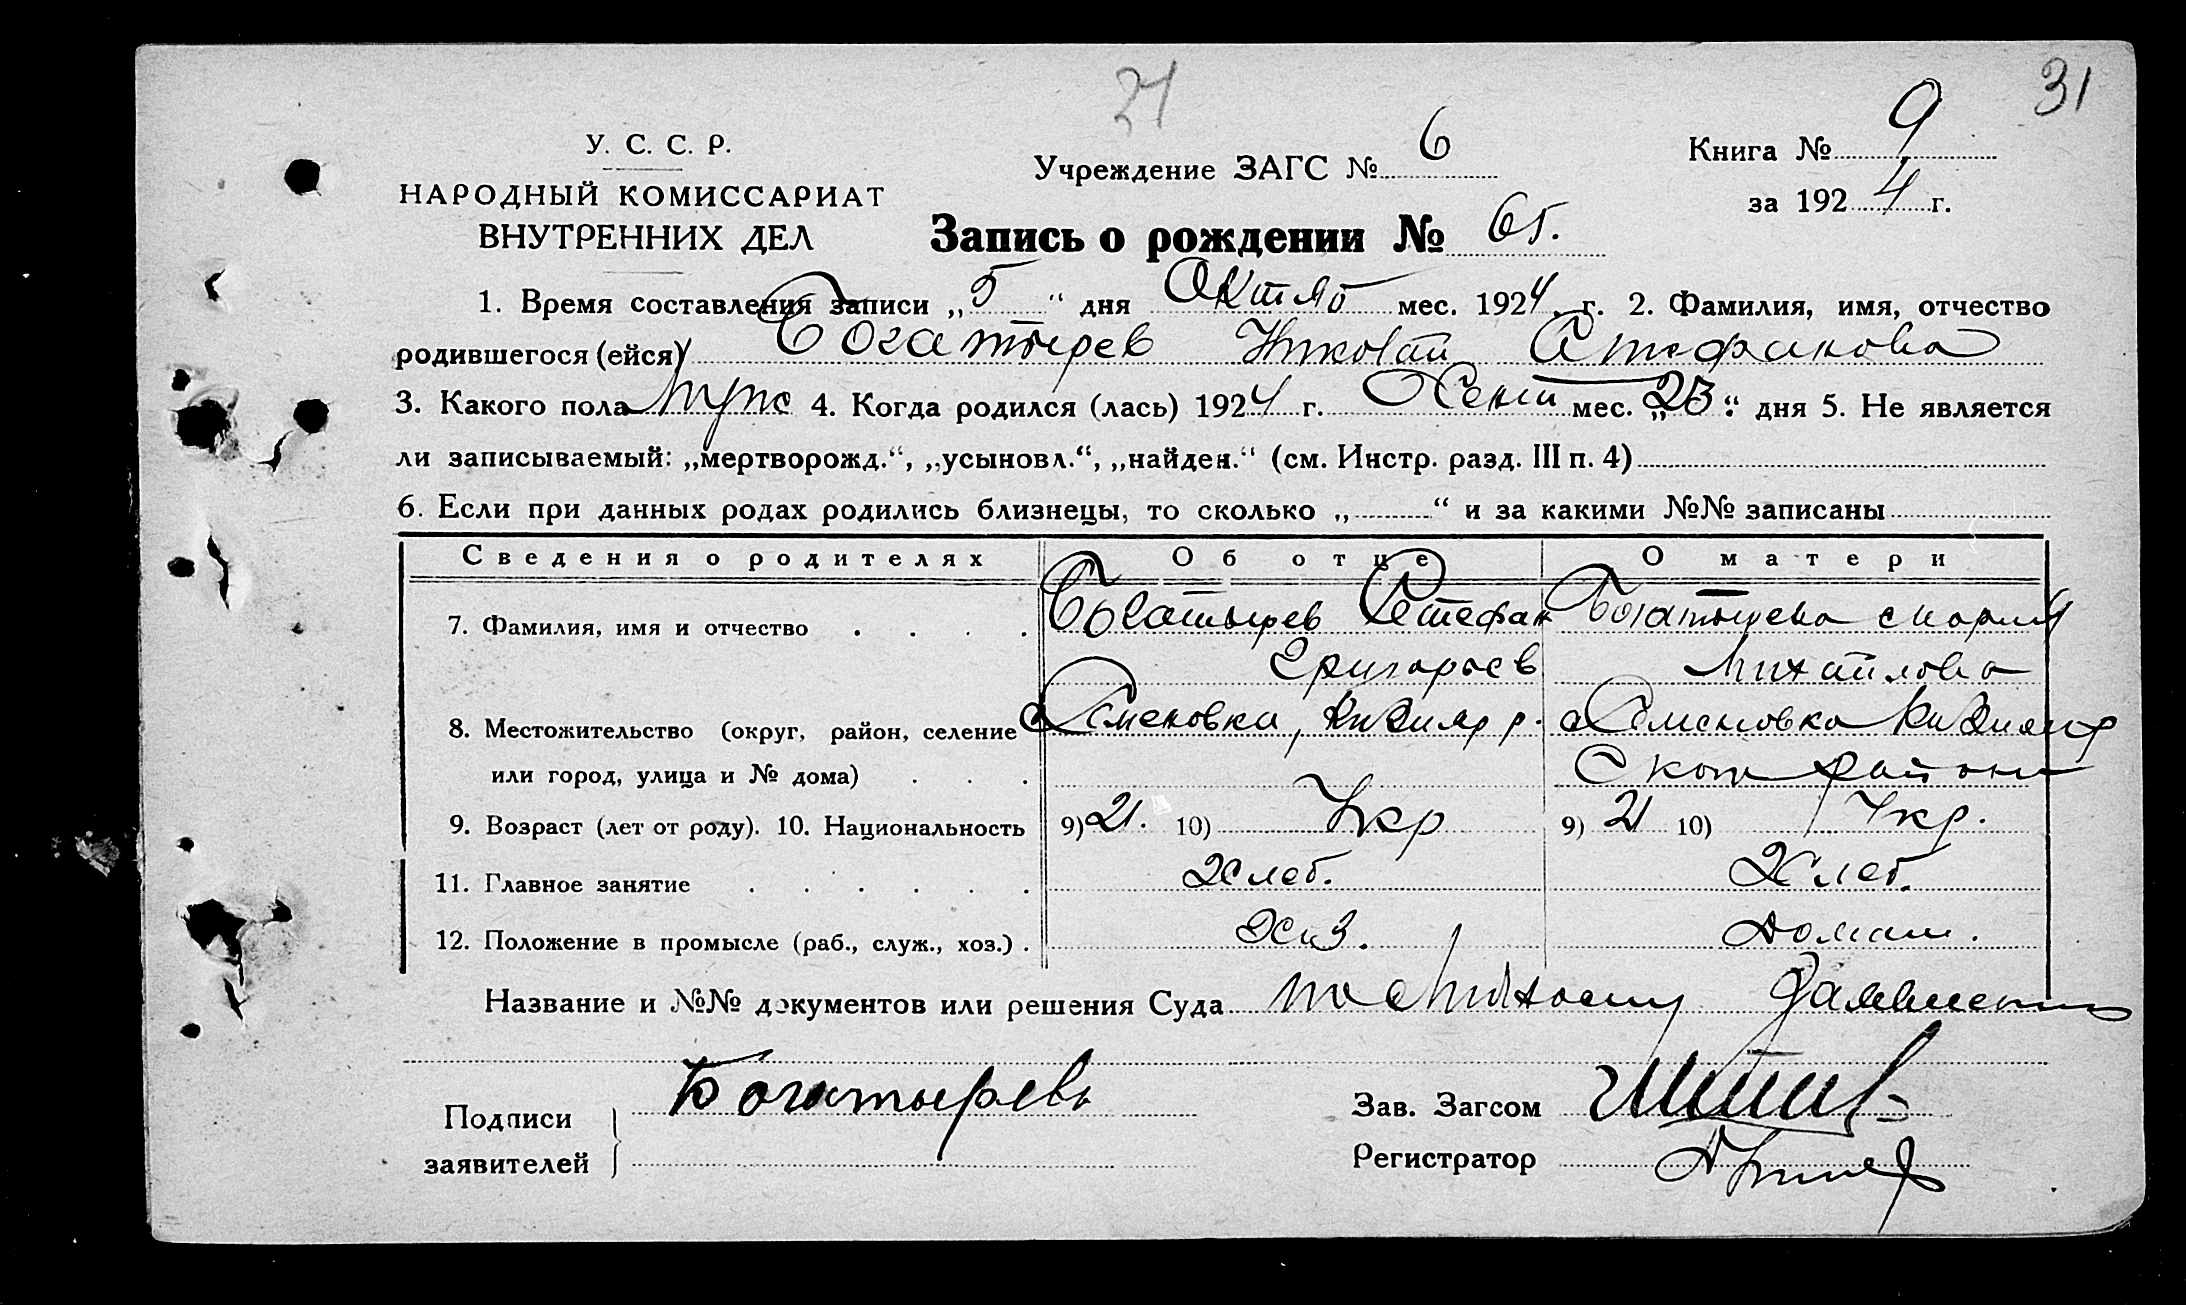 31
У. С. С. Р.
НАРОДНЫЙ КОМИССАРИАТ
ВНУТРЕННИХ ДЕЛ
Учреждение ЗАГС № 6
Книга № 9
за 1924 г.
Запись о рождении № 65.
1. Время составления записи „5“ дня Октяб мес. 1924 г. 2. Фамилия, имя, отчество
родившегося (ейся) Богатырев Николай Стефанова
3. Какого пола Муж 4. Когда родился (лась) 1924 г. Сент мес. „23“ дня 5. Не является
ли записываемый: „мертворожд.“, „усыновл.“, „найден.“ (см. Инстр. разд. III п. 4)
6. Если при данных родах родились близнецы, то сколько „ “ и за какими №№ записаны
Сведения о родителях Об отце О матери
7. Фамилия, имя и отчество Богатырев Стефан Богатырева Мария
Григорьев Михайлова
8. Местожительство (округ, район, селение с Семеновка, р. с Семеновка
или город, улица и № дома) района
9. Возраст (лет от роду). 10. Национальность 9) 21. 10) Укр 9) 21 10) Укр.
11. Главное занятие Хлеб. Хлеб.
12. Положение в промысле (раб., служ., хоз.) Хоз. Домаш.
Название и №№ документов или решения Суда по
Подписи заявителей Богатырев
Зав. Загсом
Регистратор